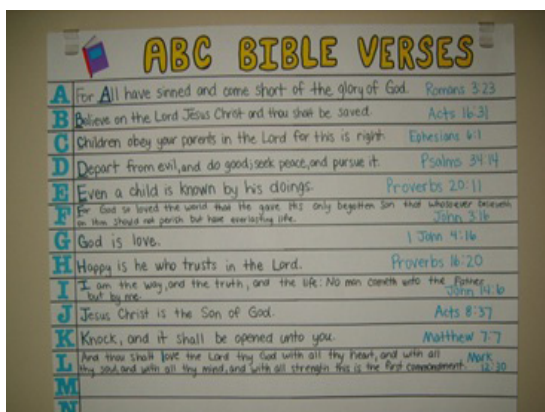 ABC BIBLE VERSES
A For All have sinned and come short of the glory of God. Romans 3:23
B Believe on the Lord Jesus Christ and thou shalt be saved. Acts 16:31
C Children obey your parents in the Lord for this is right. Ephesians 6:1
D Depart from evil, and do good; seek peace, and pursue it. Psalms 34:14
E Even a child is known by his doings. Proverbs 20:11
F For God so loved the world that He gave His only begotten Son that whosoever believeth
on Him should not perish but have everlasting life. John 3:16
G God is love. 1 John 4:16
H Happy is he who trusts in the Lord. Proverbs 16:20
I I am the way, and the truth, and the life: No man cometh unto the Father
but by me. John 14:6
J Jesus Christ is the Son of God. Acts 8:37
K Knock, and it shall be opened unto you. Matthew 7:7
L And thou shalt love the Lord thy God with all thy heart, and with all Mark
thy soul, and with all thy mind, and with all strength this is the first commandment. 12:30
M
N